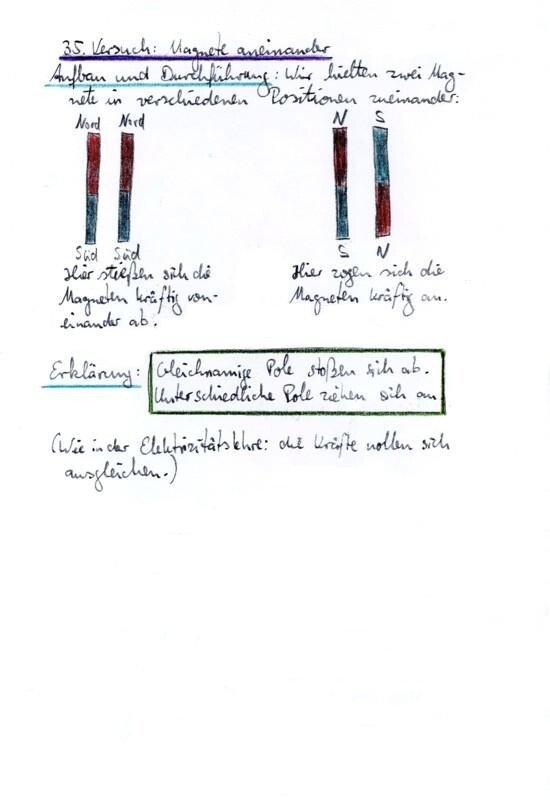 35. Versuch: Magnete aneinander
Aufbau und Durchführung: Wir hielten zwei Mag-
nete in verschiedenen Positionen zueinander:
Nord Nord
N S
Süd Süd
S N
Hier stießen sich die
Magneten kräftig von-
einander ab.
Hier zogen sich die
Magneten kräftig an.
Erklärung: Gleichnamige Pole stoßen sich ab.
Unterschiedliche Pole ziehen sich an
(Wie in der Elektrizitätslehre: die Kräfte wollen sich
ausgleichen.)